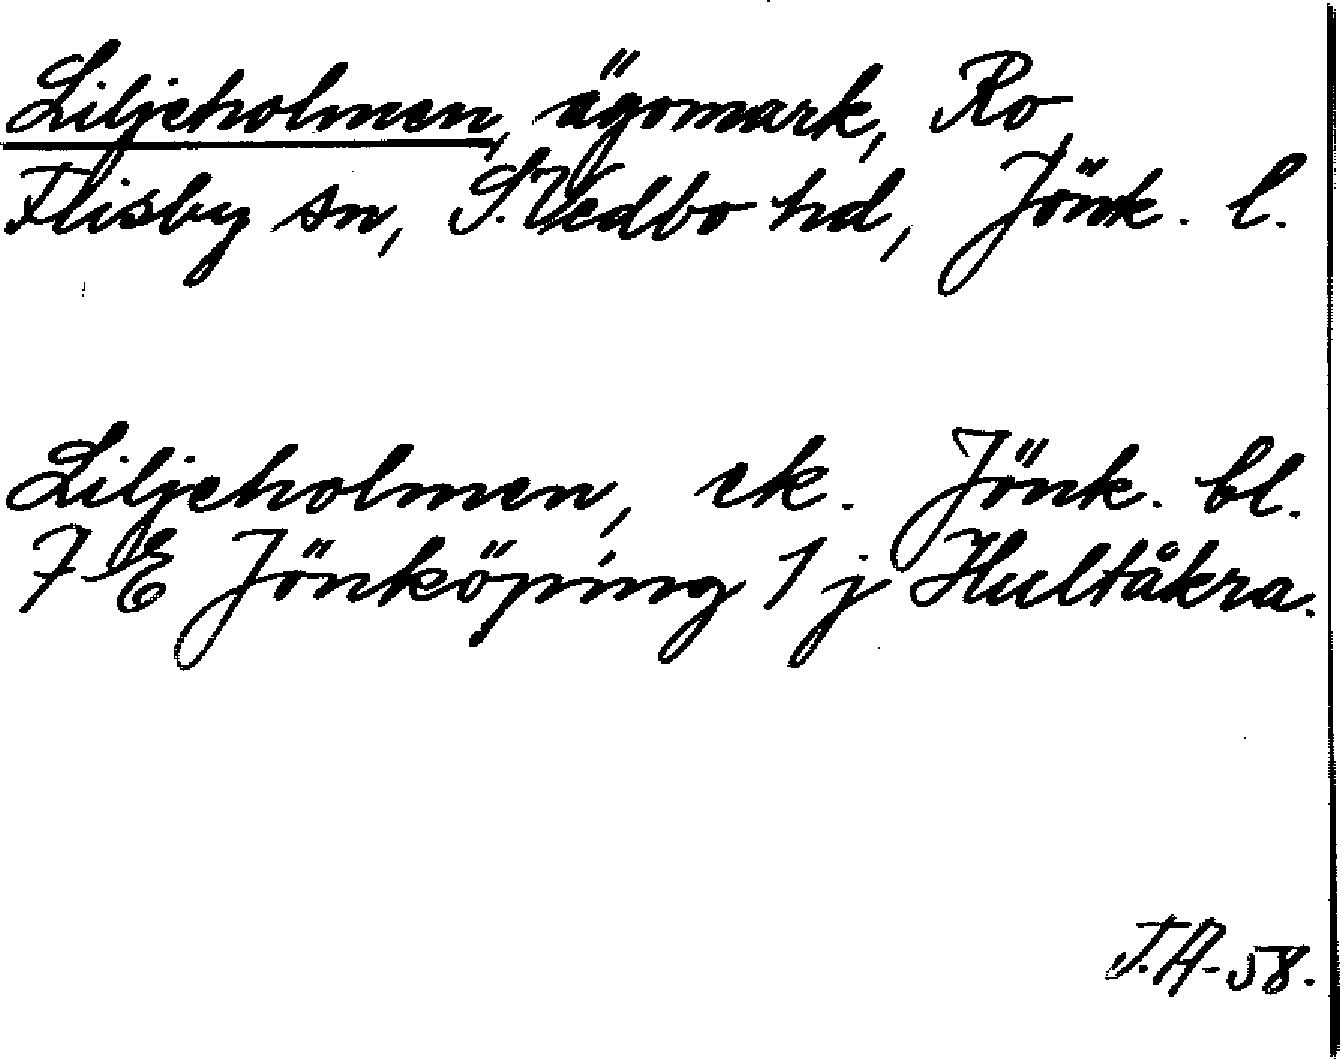 Liljeholmen, ägomark, Ro,
Flisby sn, S. Vedbo hd, Jönk. l.
Liljeholmen, ek. Jönk. bl.
7 E Jönköping 1 j Hultåkra.
T.A-58.